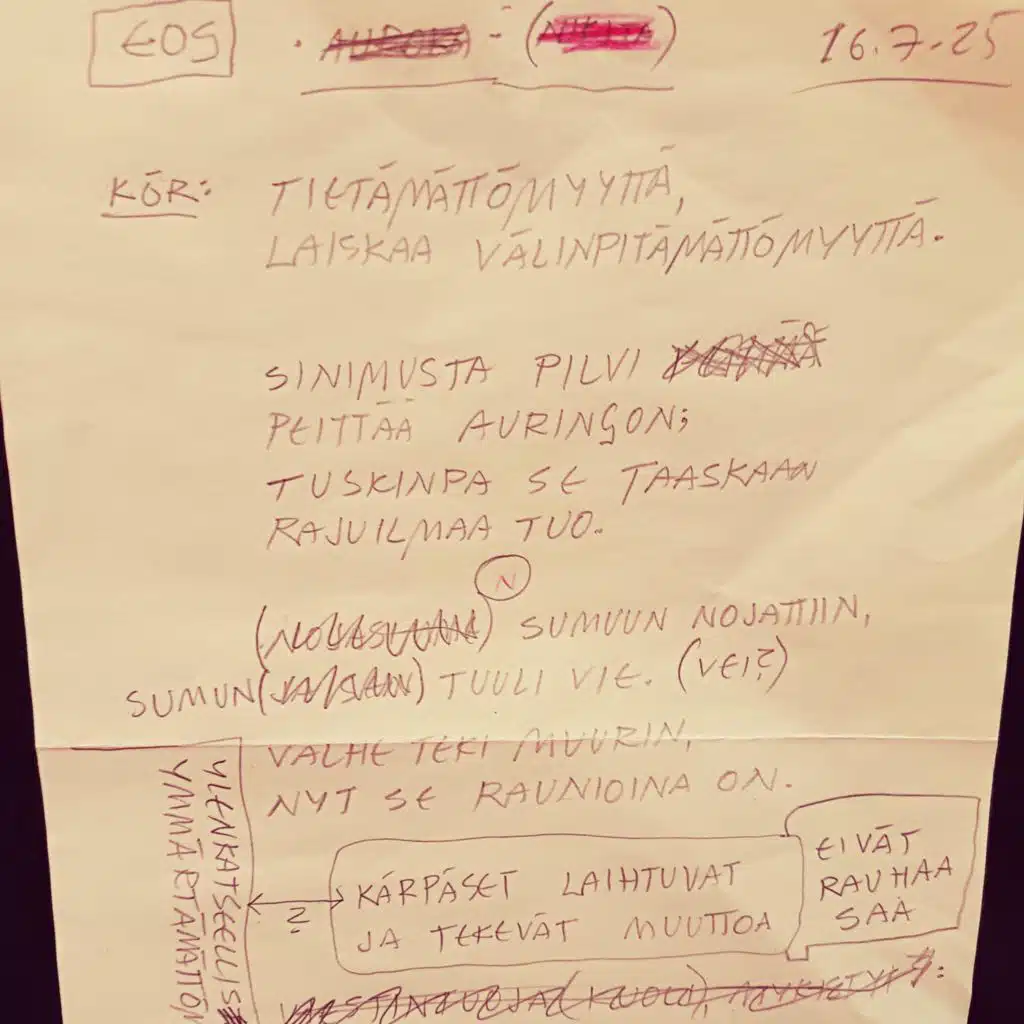 EOS
16.7.25
KÖR: TIETÄMÄTTÖMYYTTÄ,
LAISKAA VÄLINPITÄMÄTTÖMYYTTÄ.
SINIMUSTA PILVI
PEITTÄÄ AURINGON;
TUSKINPA SE TAASKAAN
RAJUILMAA TUO.
N
SUMUUN NOJATTIIN,
SUMUN TUULI VIE. (VEI?)
VALHE TEKI MUURIN,
NYT SE RAUNIOINA ON.
YLENKATSEELLIS
YMMÄRTÄMÄTTÖM
?
KÄRPÄSET LAIHTUVAT
JA TEKEVÄT MUUTTOA
EIVÄT
RAUHAA
SAA